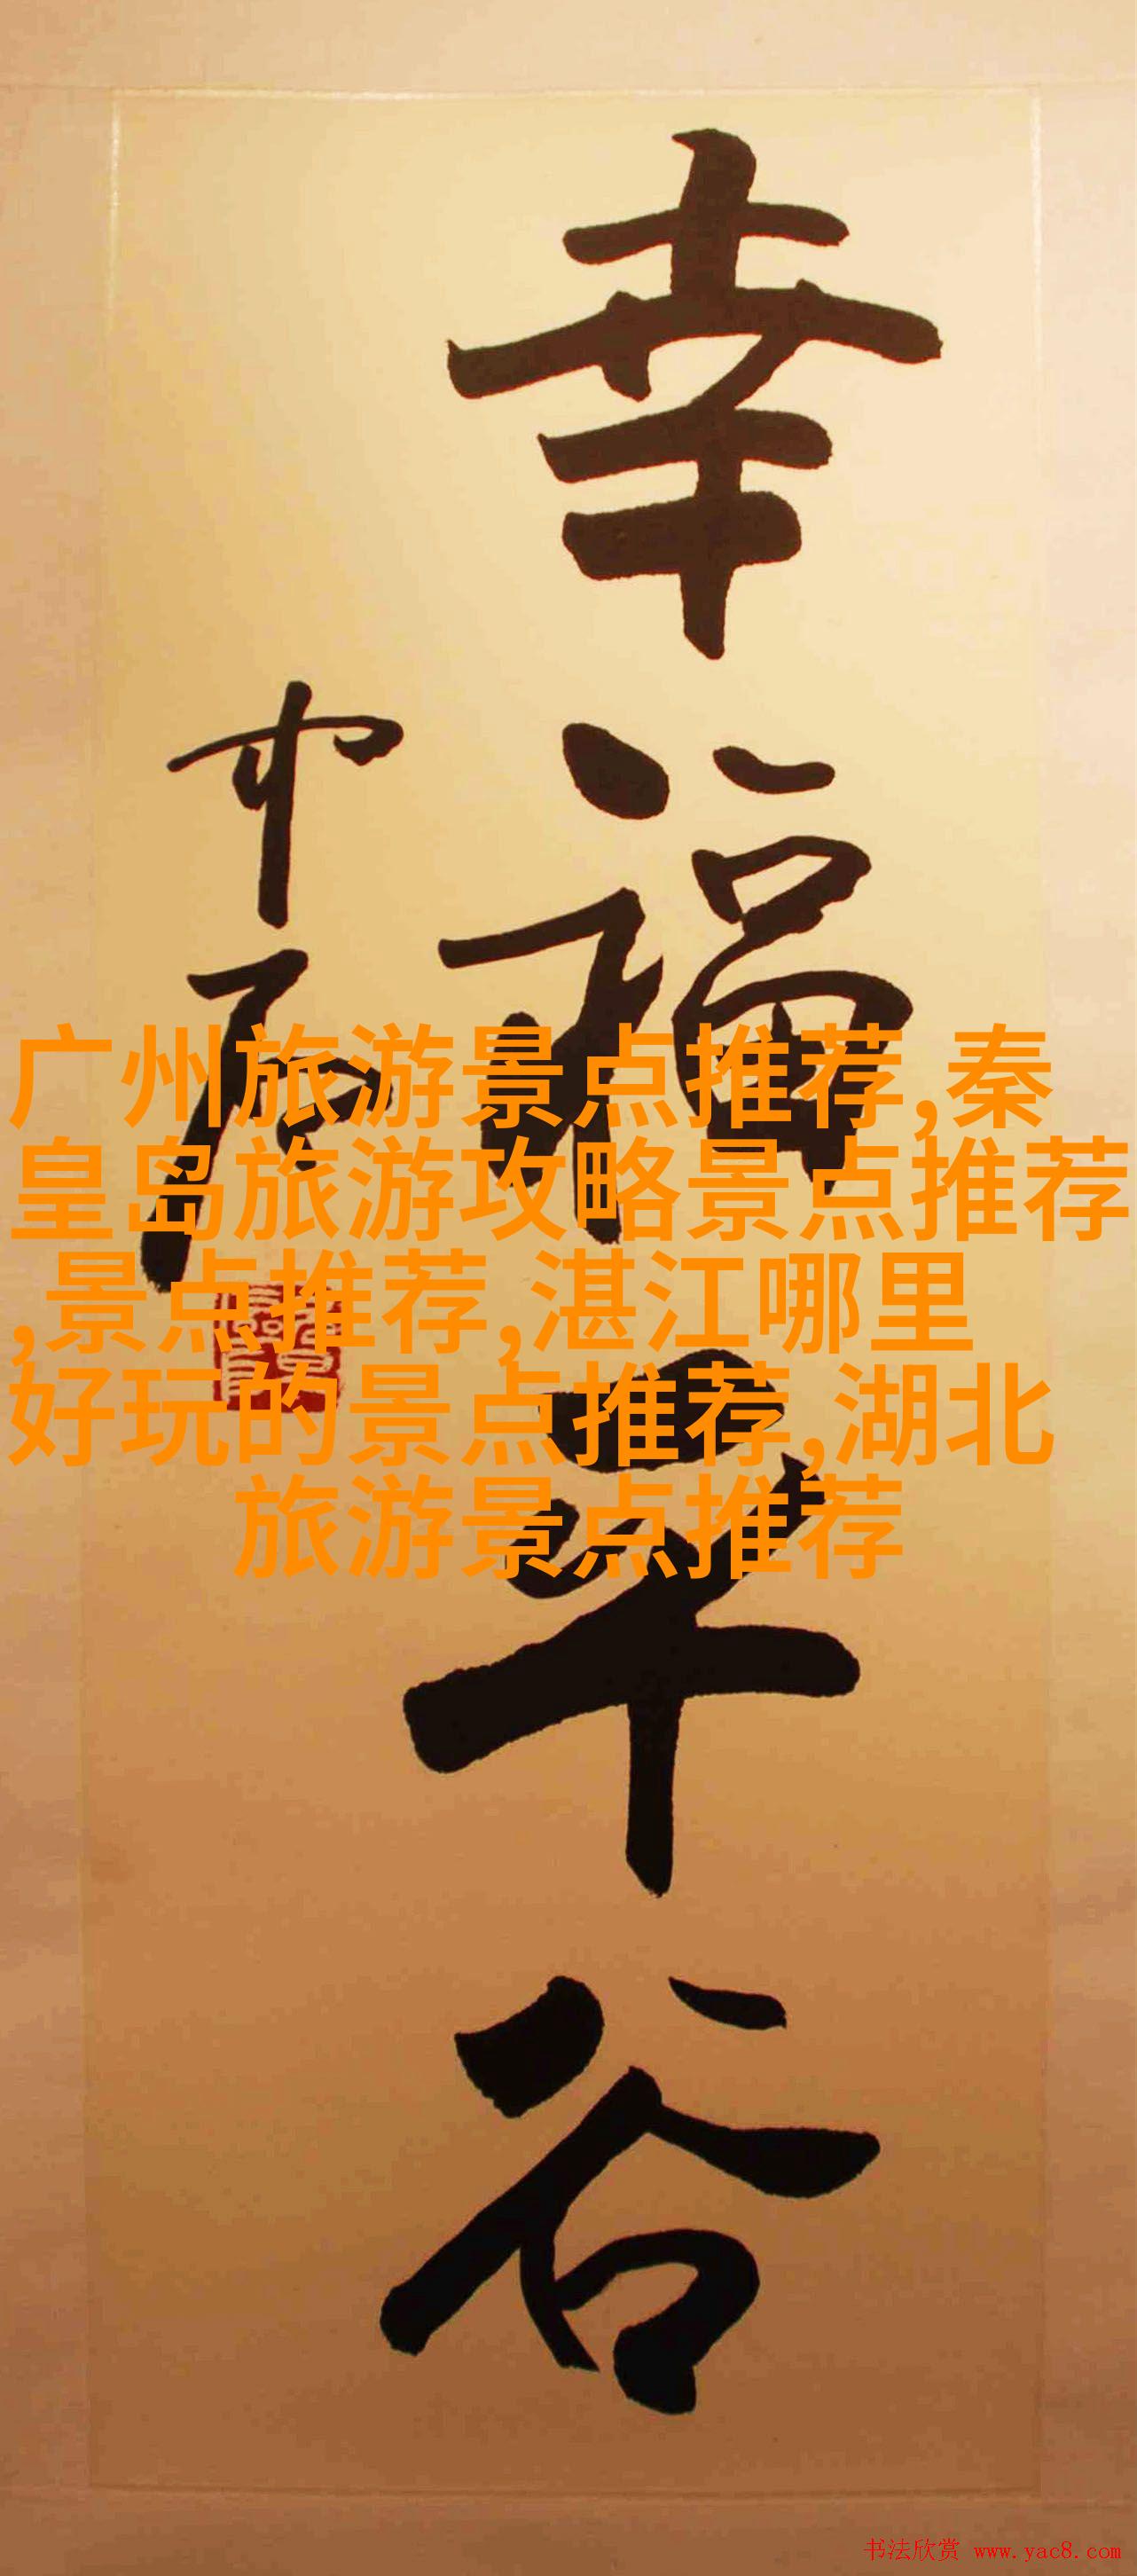 幸福平谷
中石
广州旅游景点推荐,秦
皇岛旅游攻略景点推荐
,景点推荐,湛江哪里
好玩的景点推荐,湖北
旅游景点推荐
书法欣赏 www.yac8.com